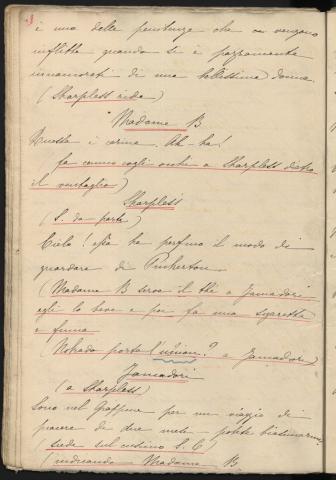 è una delle penitenze che ci vengono
inflitte quando si è pazzamente
innamorati di una bellissima donna.
(Sharpless ride)
Madame B
Questa è carina. Ah-ha!
fa cenno cogli occhi a Sharpless dietro
il ventaglio)
Sharpless
(S. da parte)
Cielo! essa ha perfino il modo di
guardare di Pinkerton.
(Madame B serve il thè a Yamadori
egli lo beve e poi fa una sigaretta
e fuma
(Nakado porta l' ? a Yamadori)
Yamadori
(a Sharpless)
Sono nel Giappone per un viaggio di
piacere di due mesi - potete
siede sul cuscino S. C)
(indicando Madame B